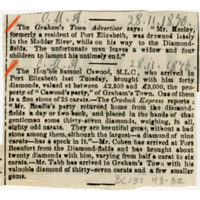 28.11.1870
The Graham's Town Advertiser says: — Mr. Keeley,
formerly a resident of Port Elizabeth, was drowned lately
in the Modder River, while on his way to the Diamond-
fields. The unfortunate man leaves a widow and four
children to lament his untimely end."
The Hon'ble Samuel Cawood, M.L.C., who arrived in
Port Elizabeth last Tuesday, brought with him forty
diamonds, valued at between £2,500 and £3,000, the pro-
perty of "Cawood's party," of Graham's Town. One of them
is a fine stone of 25 carats.—The Cradock Express reports:
Mr. party returned home from the diamond-
fields a day or two back, and placed in the hands of that
gentleman some thirty-seven diamonds, weighing, in all,
eighty carats. They are beautiful gems, without a bad
stone among them, although the largest—a diamond of nine
carats—has a speck in it."—Mr. Cohen has arrived at Fort
Beaufort from the Diamond-fields and has brought about
twenty diamonds with him, varying from half a carat to six
carats.—Mr. Tabb has arrived in Graham's Town with his
valuable diamond of thirty-seven carats and a few smaller
gems.